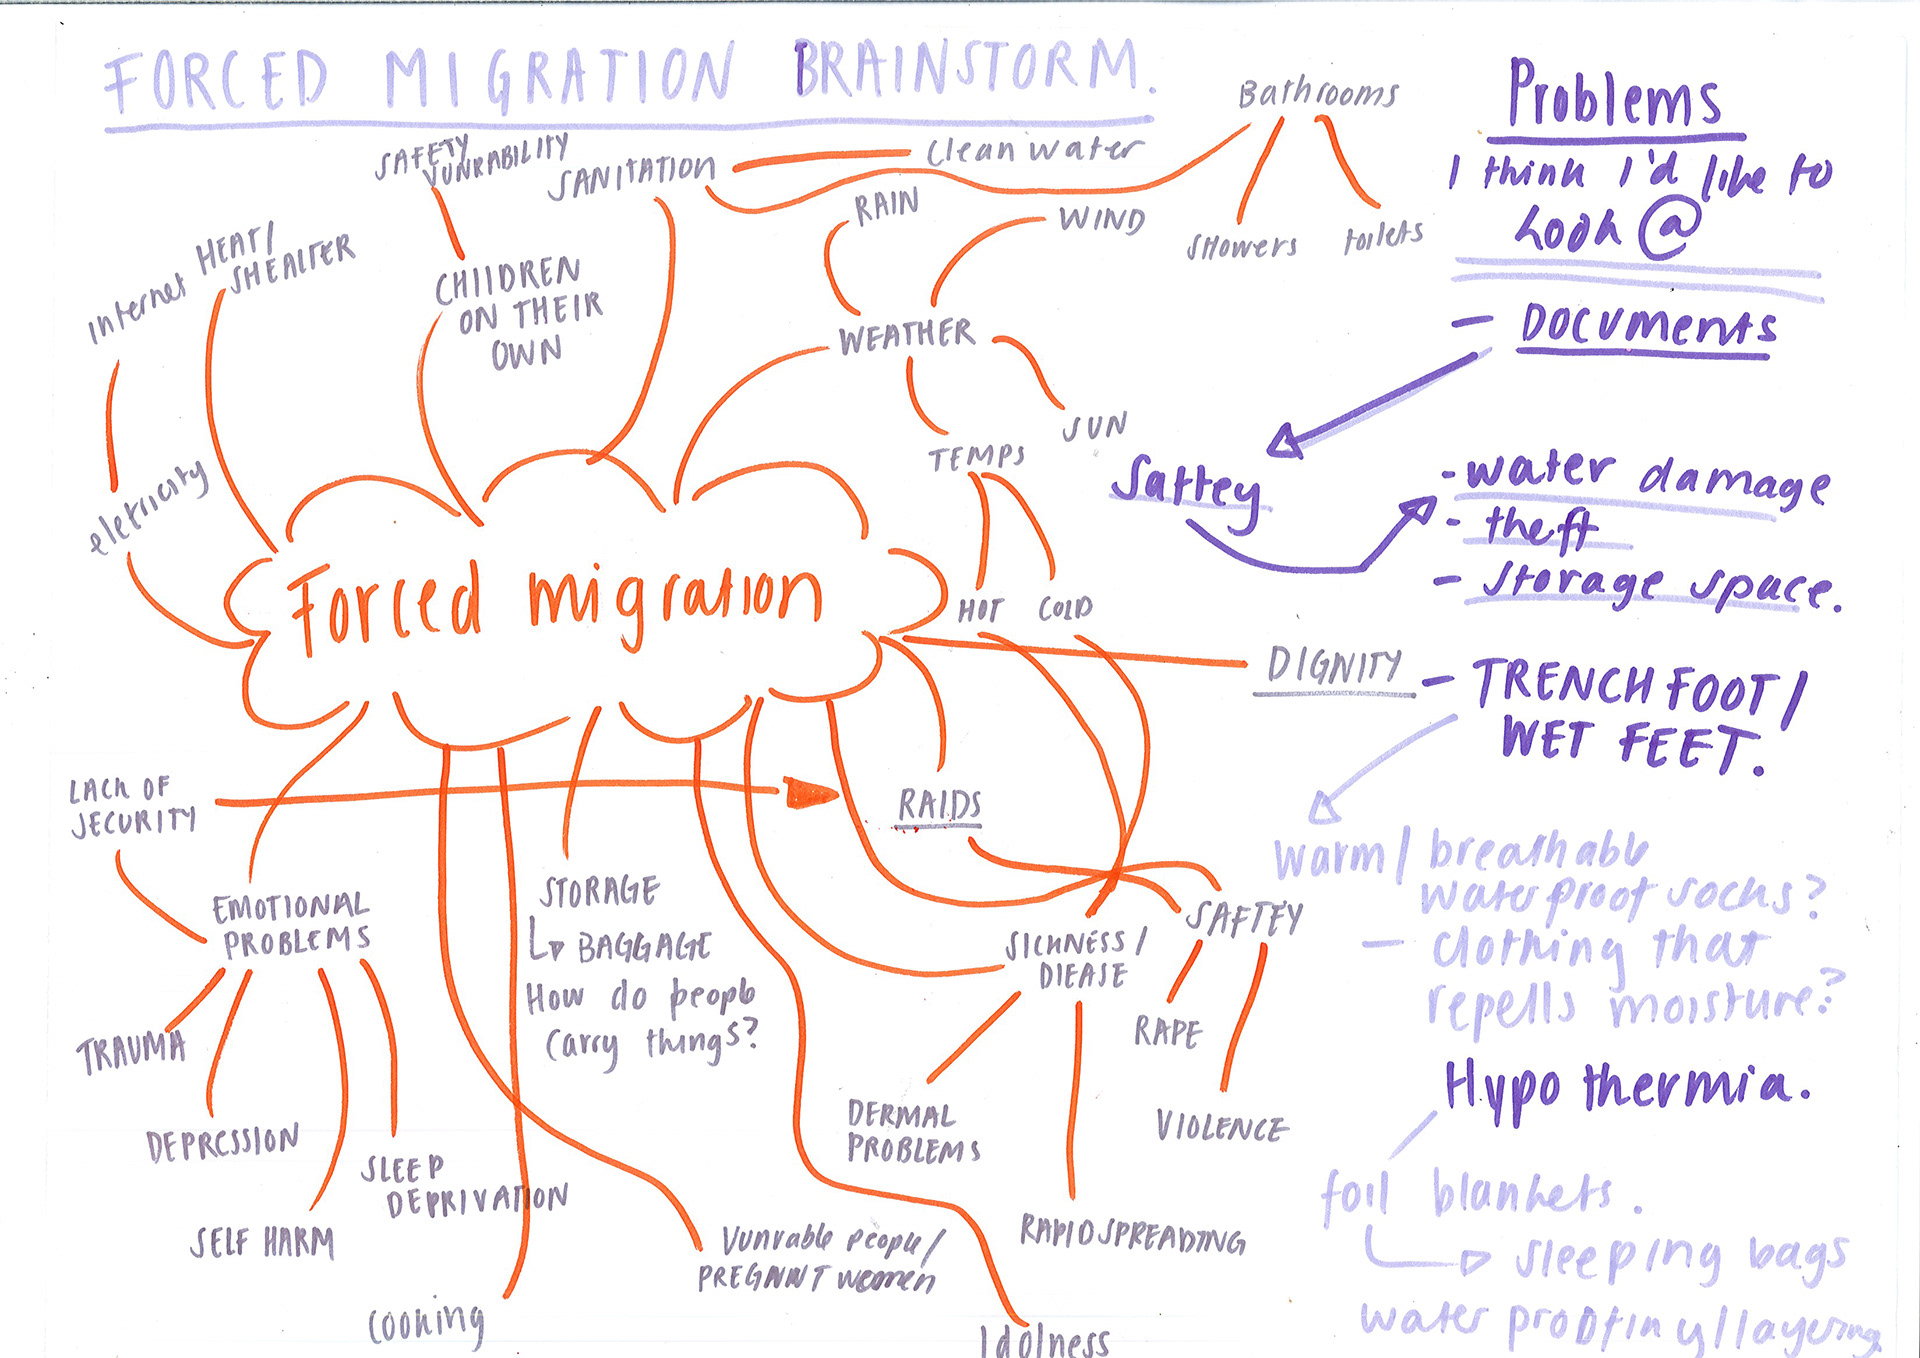 FORCED MIGRATION BRAINSTORM.
SAFETY
VUNRABILITY
SANITATION
Clean water
Bathrooms
SHOWERS
toilets
RAIN
WIND
internet
HEAT/
SHEALTER
CHIlDREN
ON THEIR
OWN
WEATHER
SUN
TEMPS
HOT
COLD
eletricity
Forced migration
DIGNITY
LACK OF
SECURITY
RAIDS
EMOTIONAL
PROBLEMS
TRAUMA
DEPRESSION
SELF HARM
SLEEP
DEPRIVATION
STORAGE
BAGGAGE
How do people
carry things?
SICKNESS/
DIEASE
SAFTEY
RAPE
VIOLENCE
DERMAL
PROBLEMS
RAPID SPREADING
Vunrable people/
PREGNANT women
cooking
Idolness
Problems
I think I'd like to
look @
- DOCUMENTS
Saftey
- water damage
- theft
- storage space.
- TRENCH FOOT/
WET FEET.
warm/ breathable
waterproof socks?
- clothing that
repells moisture?
Hypothermia.
foil blankets.
sleeping bags
water proofing/layering